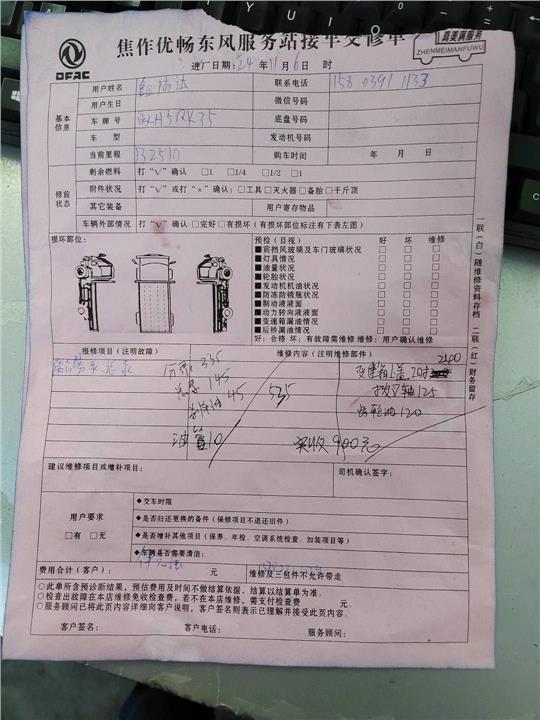 DFAC
焦作优畅东风服务站接车交修单
真美满服务
ZHENMEIMANFUWU
进 日期: 24 年 11 月 6 日 时
基本信息
用户姓名
联系电话 158 0391 1133
用户生日
微信号码
车牌号
底盘号码
车 型
发动机号码
当前里程 132510
购车时间 年 月 日
修前状态
剩余燃料 打“√”确认 □1 □1/4 □1/2 □1
附件状况 打“√”或打“×”确认：□工具□灭火器□备胎□千斤顶
其它装备
用户寄存物品
车辆外部情况 打“√”确认 □完好□有损坏(有损坏部位标注有下表左图)
损坏部位:
预检(目视) 好 坏 维修
■前挡风玻璃及车门玻璃状况 □ □ □
■灯具情况 □ □ □
■油量状况 □ □ □
■轮胎状况 □ □ □
■发动机机油状况 □ □ □
■防冻防锈瓶状况 □ □ □
■制动液液面 □ □ □
■动力转向液液面 □ □ □
■变速箱漏油情况 □ □ □
■后桥漏油情况 □ □ □
好: 合格 坏: 有故障需维修 维修: 用户确认维修
一联(白)随维修资料存档 二联(红)财务留存
报修项目(注明故障)
维修内容(注明维修部件)
分泵 335
总泵 145
45
535
油管10
2400
变速箱上盖
拨叉轴 125
齿轮油 120
实收 900元
建议维修项目或增补项目：
司机确认签字：
用户要求
□有 □无
◆交车时限
◆是否归还更换的备件（保修项目不退还旧件）
◆是否增补其他项目（保养、年检、空调系统检查、加装项目等）
◆车辆是否需要清洁：
费用合计(客户): 元 维修及三包件不允许带走
○此单所含预诊断结果，预估费用及时间不做结算依据，结算以结算单为准。
○检查出故障在本店维修免收检查费，若不在本店维修，需支付检查费 元。
○服务顾问已将此页内容详细向客户说明，客户签名则表示已理解并接受此页内容。
客户签名: 客户电话: 服务顾问: